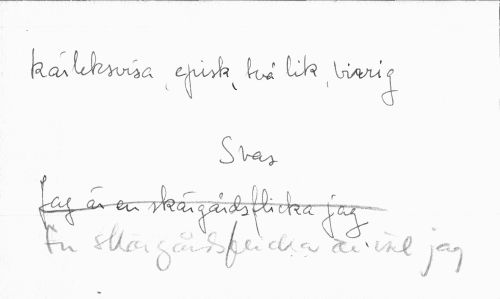 kärleksvisa, episk, två lik, vissrig
Svas
Jag är en skärgårdsflicka jag
En skärgårdsflicka är jag